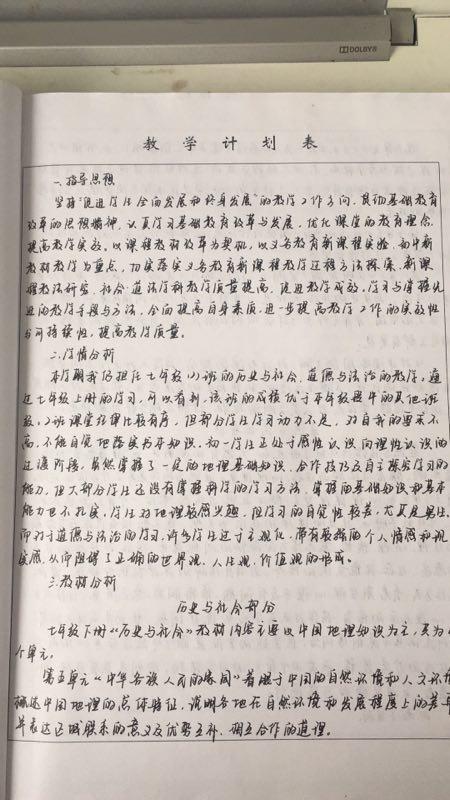 DOLBY®
教学计划表
一.指导思想
坚持"促进学生全面发展和终身发展"的教学工作方向，贯彻基础教育
改革的思想精神，认真学习基础教育改革与发展，优化课堂的教育理念，
提高教学实效。以课程教材改革为契机，以义务教育新课程实验，初中新
教材教学为重点，切实落实义务教育新课程教学过程方法探索，新课
程教法研究，社会道法学科教学质量提高，促进教学成效，学习与掌握先
进的教学手段与方法，全面提高自身素质，进一步提高教学工作的实效性
与可持续性，提高教学质量。
二.学情分析
本学期我仍担任七年级(2)班的历史与社会、道德与法治的教学。通
过七年级上册的学习，可以看到，该班的成绩优于本年级段中的其他班
级，2班课堂纪律比较有序，但部分学生学习动力不足，对自我的要求不
高，不能自觉地落实书本知识。初一学生正处于感性认识向理性认识的
过渡阶段，虽然掌握了一定的地理基础知识、合作技巧及自主探究学习的
能力，但大部分学生还没有掌握科学的学习方法，掌握的基础知识和基本
能力也不扎实，学生对地理较感兴趣，但学习的自觉性较差，尤其是男生。
而对于道德与法治的学习，许多学生过于主观化，带有较强的个人情感和现
实感，从而阻碍了正确的世界观、人生观、价值观的形成。
三.教材分析
历史与社会部分
七年级下册《历史与社会》教材内容主要以中国地理知识为主，共为
个单元。
第五单元"中华各族人民的家园"着眼于中国的自然环境和人文环
概述中国地理的总体特征，说明各地在自然环境和发展程度上的差
并表达区域联系的意义及优势互补、相互合作的道理。